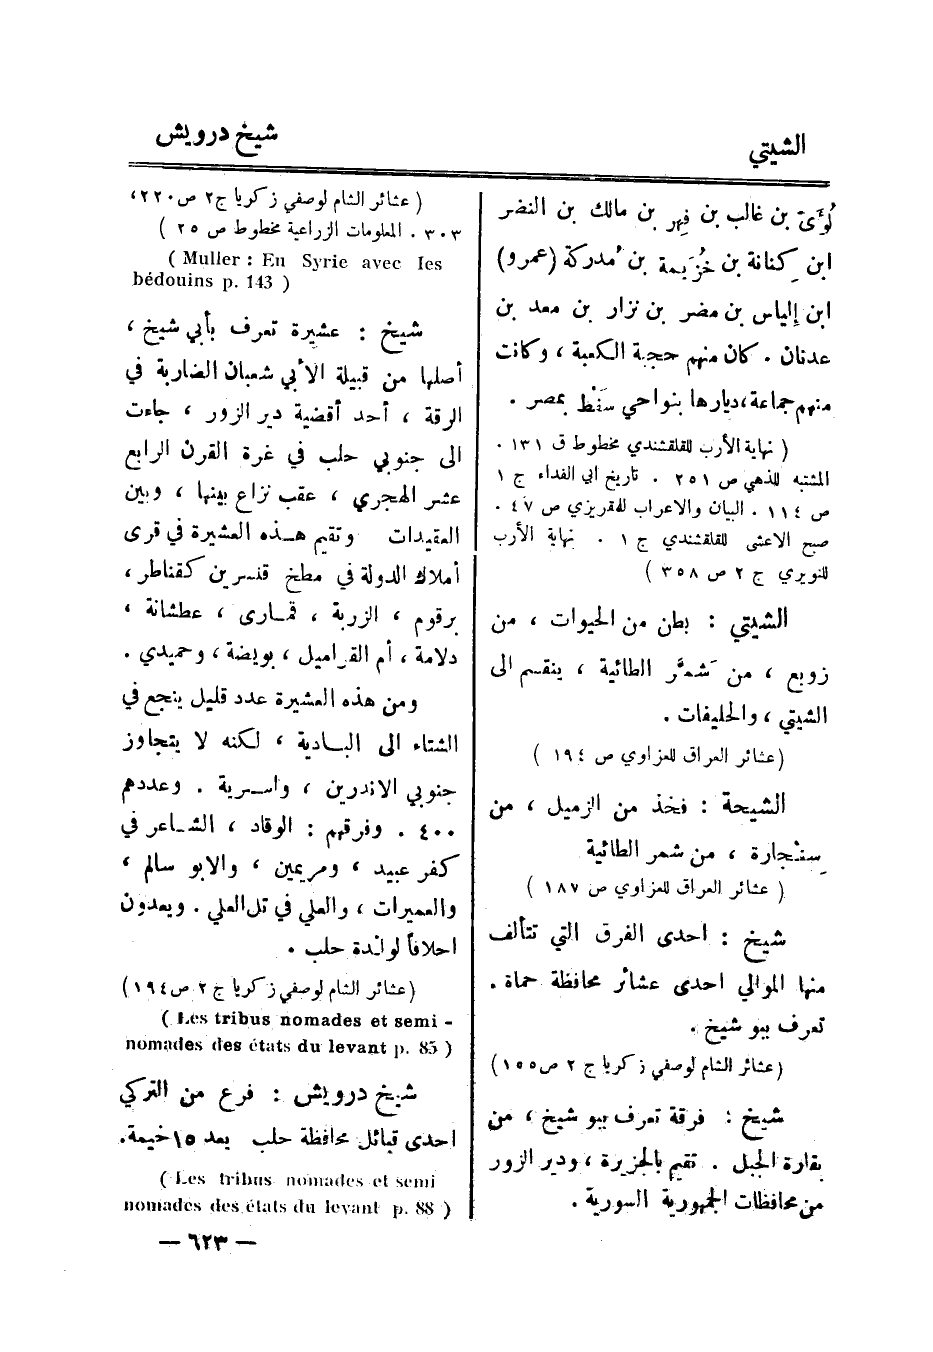 الشيتي
شيخ درويش
لُؤَيّ بن غالب بن فِهر بن مالك بن النضر
ابن كِنانة بن خُزَيمة بن مُدركة (عمرو)
ابن إلياس بن مضر بن نزار بن معد بن
عدنان . كان منهم حجبة الكعبة ، وكانت
منهم جماعة ، ديارها بنواحي سَفْط بمصر .
( نهاية الأرب للقلقشندي مخطوط ق ١٣١ .
المشتبه للذهبي ص ٢٥١ . تاريخ ابي الفداء ج ١
ص ١١٤ . البيان والاعراب للمقريزي ص ٤٧ .
صبح الاعشى للقلقشندي ج ١ . نهاية الأرب
للنويري ج ٢ ص ٣٥٨ )
الشيتي : بطن من الحيوات ، من
زوبع ، من شمَّر الطائية ، ينقسم الى
الشيتي ، والحليفات .
(عشائر العراق للعزاوي ص ١٩٤ )
الشيحة : فخذ من الزميل ، من
سِنْجارة ، من شمر الطائية
( عشائر العراق للعزاوي ص ١٨٧ )
شيخ : احدى الفرق التي تتألف
منها الموالي احدى عشائر محافظة حماة .
تعرف ببو شيخ .
(عشائر الشام لوصفي زكريا ج ٢ ص ١٥٥)
شيخ : فرقة تعرف ببو شيخ ، من
بقارة الجبل . تقيم بالجزيرة ، ودير الزور
من محافظات الجمهورية السورية .
( عشائر الشام لوصفي زكريا ج٢ ص ٢٢٠،
٣٠٣ . المعلومات الزراعية مخطوط ص ٢٥ )
( Muller : En Syrie avec les
bédouins p. 143 )
شيخ : عشيرة تعرف بأبي شيخ ،
أصلها من قبيلة الأبي شعبان الضاربة في
الرقة ، أحد أقضية دير الزور ، جاءت
الى جنوبي حلب في غرة القرن الرابع
عشر الهجري ، عقب نزاع بينها ، وبين
العقيدات وتقيم هذه العشيرة في قرى
أملاك الدولة في مطخ قنسرين كقناطر ،
برقوم ، الزربة ، قمارى ، عطشانة ،
دلامة ، أم القراميل ، بويضة ، وحميدي .
ومن هذه العشيرة عدد قليل ينجع في
الشتاء الى البادية ، لكنه لا يتجاوز
جنوبي الاندرين ، واسرية . وعددهم
٤٠٠ . وفرقهم : الوقاد ، الشاعر في
كفر عبيد ، ومريمين ، والابو سالم ،
والعميرات ، والعلي في تل العلي . ويعدون
احلافاً لواندة حلب .
(عشائر الشام لوصفي زكريا ج ٢ ص ١٩٤)
( Les tribus nomades et semi -
nomades des états du levant p. 85 )
شيخ درويش : فرع من التركي
احدى قبائل محافظة حلب يعد ١٥ خيمة.
( Les tribus nomades et semi
nomades des états du levant p. 88 )
— ٦٢٣ —